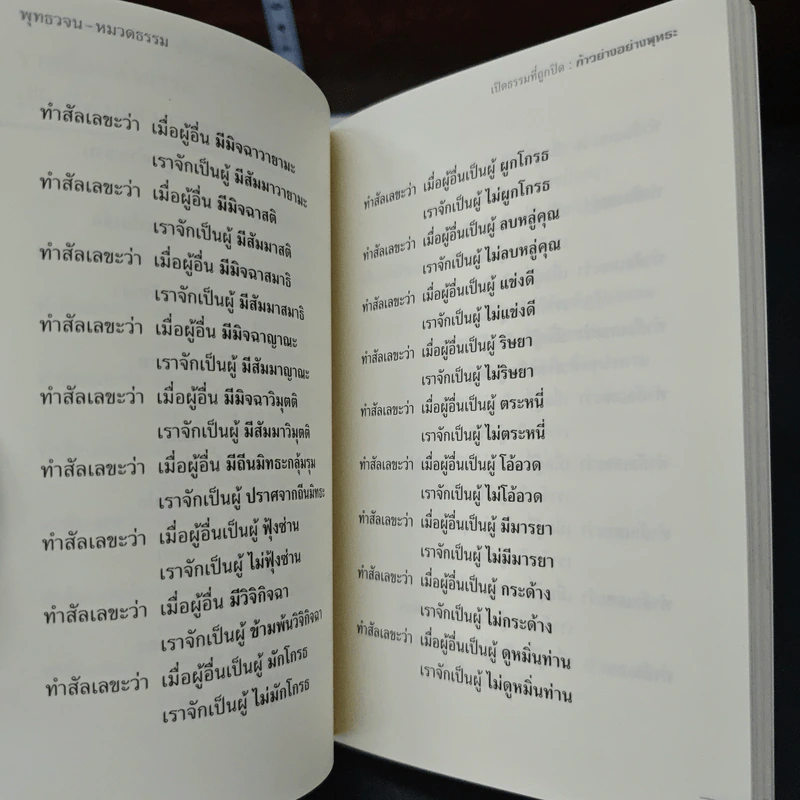 พุทธวจน - หมวดธรรม
ทำสัลเลขะว่า เมื่อผู้อื่น มีมิจฉาวายามะ
เราจักเป็นผู้ มีสัมมาวายามะ
ทำสัลเลขะว่า เมื่อผู้อื่น มีมิจฉาสติ
เราจักเป็นผู้ มีสัมมาสติ
ทำสัลเลขะว่า เมื่อผู้อื่น มีมิจฉาสมาธิ
เราจักเป็นผู้ มีสัมมาสมาธิ
ทำสัลเลขะว่า เมื่อผู้อื่น มีมิจฉาญาณะ
เราจักเป็นผู้ มีสัมมาญาณะ
ทำสัลเลขะว่า เมื่อผู้อื่น มีมิจฉาวิมุตติ
เราจักเป็นผู้ มีสัมมาวิมุตติ
ทำสัลเลขะว่า เมื่อผู้อื่น มีถีนมิทธะกลุ้มรุม
เราจักเป็นผู้ ปราศจากถีนมิทธะ
ทำสัลเลขะว่า เมื่อผู้อื่นเป็นผู้ ฟุ้งซ่าน
เราจักเป็นผู้ ไม่ฟุ้งซ่าน
ทำสัลเลขะว่า เมื่อผู้อื่น มีวิจิกิจฉา
เราจักเป็นผู้ ข้ามพ้นวิจิกิจฉา
ทำสัลเลขะว่า เมื่อผู้อื่นเป็นผู้ มักโกรธ
เราจักเป็นผู้ ไม่มักโกรธ
เปิดธรรมที่ถูกปิด : ก้าวย่างอย่างพุทธะ
ทำสัลเลขะว่า เมื่อผู้อื่นเป็นผู้ ผูกโกรธ
เราจักเป็นผู้ ไม่ผูกโกรธ
ทำสัลเลขะว่า เมื่อผู้อื่นเป็นผู้ ลบหลู่คุณ
เราจักเป็นผู้ ไม่ลบหลู่คุณ
ทำสัลเลขะว่า เมื่อผู้อื่นเป็นผู้ แข่งดี
เราจักเป็นผู้ ไม่แข่งดี
ทำสัลเลขะว่า เมื่อผู้อื่นเป็นผู้ ริษยา
เราจักเป็นผู้ ไม่ริษยา
ทำสัลเลขะว่า เมื่อผู้อื่นเป็นผู้ ตระหนี่
เราจักเป็นผู้ ไม่ตระหนี่
ทำสัลเลขะว่า เมื่อผู้อื่นเป็นผู้ โอ้อวด
เราจักเป็นผู้ ไม่โอ้อวด
ทำสัลเลขะว่า เมื่อผู้อื่นเป็นผู้ มีมารยา
เราจักเป็นผู้ ไม่มีมารยา
ทำสัลเลขะว่า เมื่อผู้อื่นเป็นผู้ กระด้าง
เราจักเป็นผู้ ไม่กระด้าง
ทำสัลเลขะว่า เมื่อผู้อื่นเป็นผู้ ดูหมิ่นท่าน
เราจักเป็นผู้ ไม่ดูหมิ่นท่าน